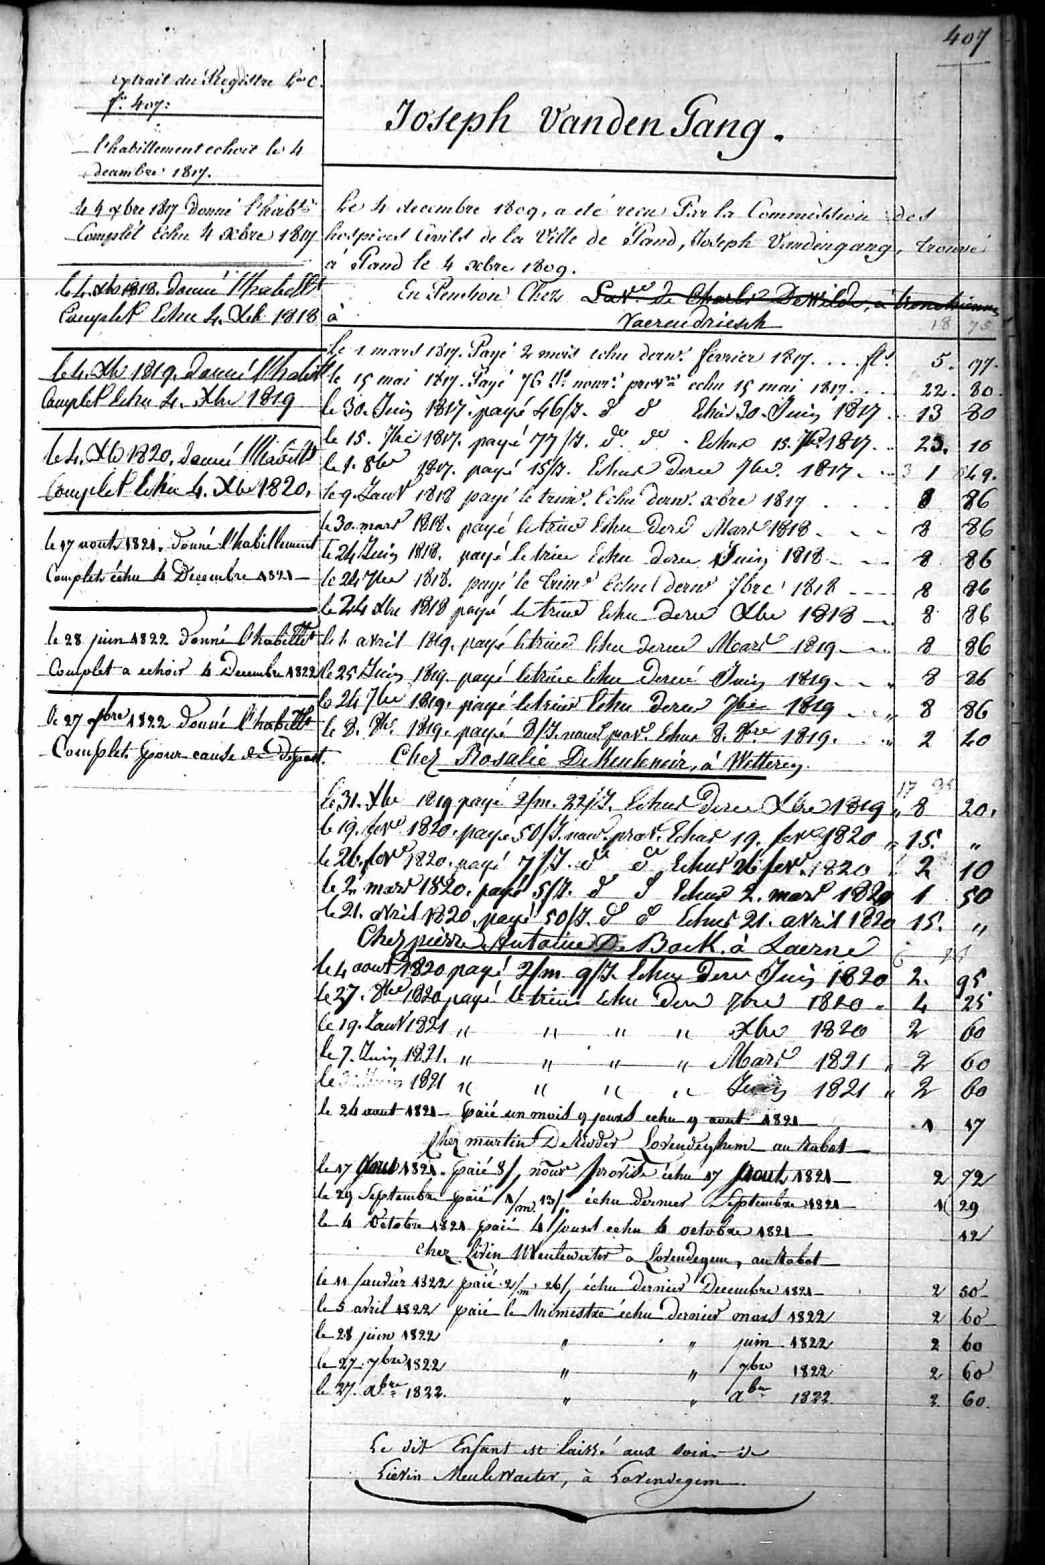 407
extrait du Registre
f° 407:
l'habillement echoit le 4
decembre 1817.
le 4 xbre 1817 donné l'habt
Complet Echu 4 xbre 1817
le 4 xbre 1818. donné l'habillt
Complet Echu 4. Xbr 1818
le 4. Xbr 1819. donné l'habillt
Complet Echu 4. Xbr 1819
le 4. Xbr 1820, donné l'habillt
Complet Echu 4. Xbr 1820.
le 17 aout 1821. donné l'habillement
Complet échu 4 Decembre 1821
le 28 juin 1822 donné l'habillt
Complet a echoir 4 Decembre 1822
le 27 1822 donné l'habillt
Complet pour cause de depart.
Joseph VandenGang.
Le 4 decembre 1809, a été recu Par la Commission des
hospices Civils de la Ville de Gand, Joseph Vandengang, trouvé
à Gand le 4 xbre 1809.
En Pension Chez La Ve de Charles DeWilde, à
à Vaerendriesch
18 75
le 1 mars 1817. Payé 2 mois echu dernr février 1817. . . . fl. 5. 97.
le 15 mai 1817. Payé 76 nourre provre echu 15 mai 1817. . . 22. 80.
le 30. Juin 1817. payé 46/J. d d Echu 30. Juin 1817 . 13 80
le 15. 7bre 1817. payé 77/J. do do Echus 15. 7bre 1817. . 23. 10
le 1. 8bre 1817. payé 15/J. Echus dernr 7bre. 1817 1 49.
le 9. Janvr 1818 payé le trimr. Echu dernr. xbre 1817 . . . . 8 86
le 30. mars 1818. payé le trimr Echu dernr Mars 1818 8 86
le 24 Juin 1818. payé le trimr Echu dernr Juin 1818 8 86
le 24 7bre 1818. payé le trimr Echu dernr 7bre 1818 8 86
le 24 Xbre 1818 payé le trimr Echu dernr Xbr 1818 8 86
le 1 avril 1819. payé le trimr Echu dernr Mars 1819 8 86
le 25 Juin 1819. payé le trimr Echu dernr Juin 1819. 8 86
le 24 7bre 1819. payé le trimr Echu dernr 7bre 1819 „ 8 86
le 8. 8bre 1819. payé 8/J. nourre prov. Echus 8. 8bre 1819. „ 2 40
Chez Rosalie DeKeukeneir, à Wetteren
17 35
le 31. Xbre 1819 payé 2/m. 22/J. Echus dernr Xbre 1819 „ 8 20.
le 19. fevr 1820. payé 50/J. nour. prov. Echus 19. fevr 1820 „ 15. „
le 26. fevr 1820. payé 7/J. do do Echus 26 fevr. 1820 2 10
le 2 mars 1820. payé 5/J. d d Echus 2. mars 1820 1 50
le 21. avril 1820. payé 50/J. d d Echus 21. avril 1820 15. „
Chez pierre Antoine De Bock. à Laerne
le 4 aout 1820 payé 2/m. 9/J. Echus dernr Juin 1820 2. 95.
le 27. 8bre 1820 payé le trimr Echu dernr 7bre 1820 „ 4 25
le 19. Janvr 1821 „ „ „ „ Xbr 1820 2 60
le 7. Juin 1821. „ „ „ „ Mars 1821 „ 2 60
le 1821 „ „ „ „ Juin 1821 „ 2 60
le 24 aout 1821 payé un mois 9 jours echu 9 aout 1821 1 17
Chez martin DeRuder Lovendeghem au Rabot
le 17 aout 1821. paié 8/J. nour provise échu 17 aout 1821 2 72
le 29 Septembre paié 1/m. 13/J. échu dernier Septembre 1821 1 29
le 4 Octobre 1821 paié 4 Jours echu 4 octobre 1821 12
chez Livin Meulewater a Lovendegem, au Rabot
le 11 Janvier 1822 paié 2/m. 26/J. échu dernier Decembre 1821 2 50
le 5 avril 1822 paié le trimestre échu dernier mars 1822 2 60
le 28 juin 1822 „ „ juin 1822 2 60
le 27 7bre 1822 „ „ 7bre 1822 2 60
le 27. xbre 1822. „ „ xbre 1822 2 60.
Le dit Enfant est laissé aux soins de
Lievin Meulewaeter, à Lovendegem.